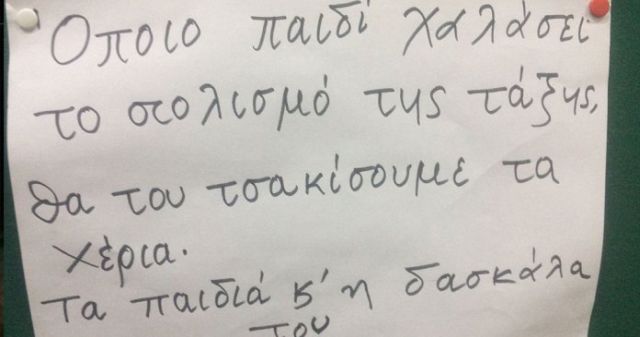 Όποιο παιδί χαλάσει
το στολισμό της τάξης,
θα του τσακίσουμε τα
χέρια.
Τα παιδιά κ' η δασκάλα
του